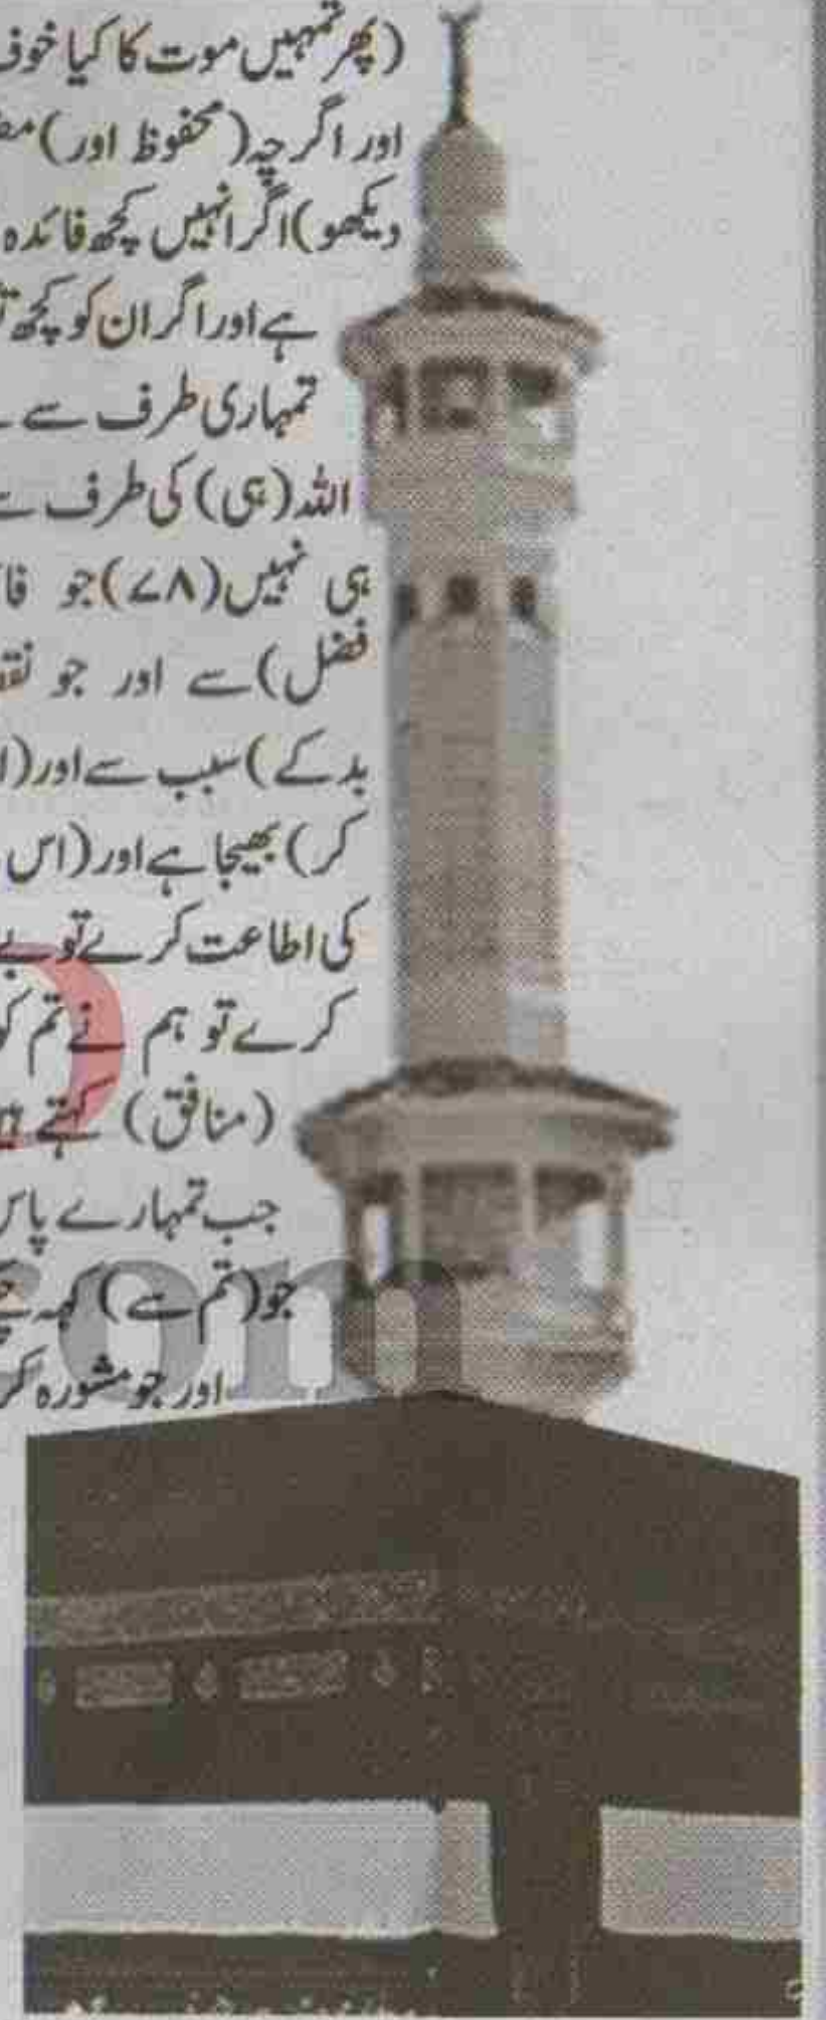 (پھر تمہیں موت کا کیا خوف
اور اگرچہ (محفوظ اور)
دیکھو) اگر انہیں کچھ فائدہ
ہے اور اگر ان کو کچھ
تمہاری طرف سے
اللہ (ہی) کی طرف سے
ہی نہیں (۷۸) جو
فضل) سے اور جو
بد کے) سبب سے اور (
کر) بھیجا ہے اور (اس
کی اطاعت کرے تو
کرے تو ہم نے تم کو
(منافق) کہتے
جب تمہارے پاس
جو (تم سے) کہہ
اور جو مشورہ
om